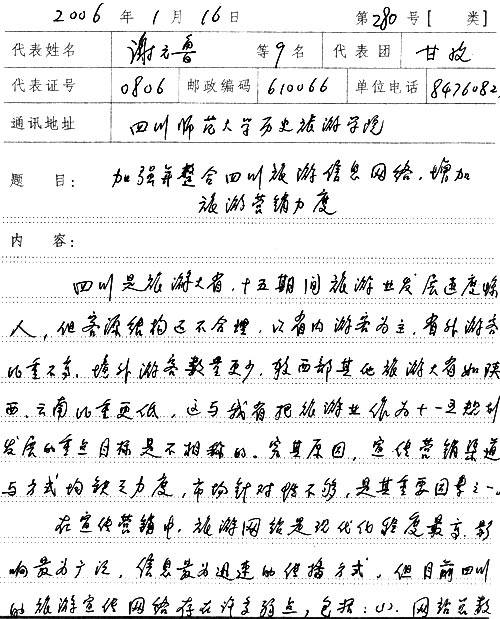 2006 年 1 月 16 日 第 280 号 [ 类]
代表姓名 谢元鲁 等 9 名 代表团 甘孜
代表证号 0806 邮政编码 610066 单位电话 8476082
通讯地址 四川师范大学历史旅游学院
题 目: 加强并整合四川旅游信息网络,增加
旅游营销力度
内 容:
四川是旅游大省,十五期间旅游业发展速度惊
人,但客源结构还不合理,以省内游客为主,省外游客
比重不高,境外游客数量更少,较西部其他旅游大省如陕
西、云南比重更低,这与我省把旅游业作为十一五规划
发展的重点目标是不相称的。究其原因,宣传营销渠道
与方式均缺乏力度,市场针对性不够,是其重要因素之一。
在宣传营销中,旅游网络是现代化程度最高、影
响最为广泛、信息最为迅速的传播方式,但目前四川
的旅游宣传网络存在许多弱点,包括:(1). 网站总数